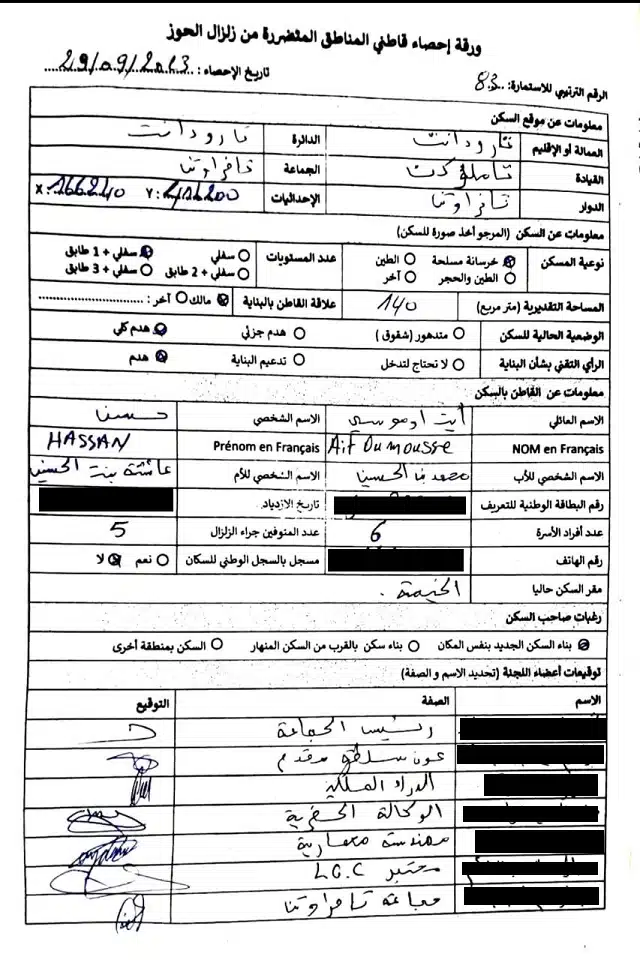 ورقة إحصاء قاطني المناطق المتضررة من زلزال الحوز
تاريخ الإحصاء : 29/09/2023
الرقم الترتيبي للاستمارة: 83
معلومات عن موقع السكن
العمالة أو الإقليم تارودانت الدائرة تارودانت
القيادة تاملوكت الجماعة تافراوتن
الدوار تافراوتن الإحداثيات X: 166240 Y:
معلومات عن السكن (المرجو أخذ صورة للسكن)
نوعية المسكن خرسانة مسلحة الطين عدد المستويات سفلي سفلي + 1 طابق
الطين والحجر آخر سفلي + 2 طابق سفلي + 3 طابق
المساحة التقديرية (متر مربع) 140 علاقة القاطن بالبناية مالك آخر :
الوضعية الحالية للسكن متدهور (شقوق) هدم جزئي هدم كلي
الرأي التقني بشأن البناية لا تحتاج لتدخل تدعيم البناية هدم
معلومات عن القاطن بالسكن
الاسم العائلي أيت اوموسى الاسم الشخصي حسن
NOM en Français Ait Oumousse Prénom en Français HASSAN
الاسم الشخصي للأب محمد بن الحسين الاسم الشخصي للأم عائشة بنت الحسين
رقم البطاقة الوطنية للتعريف تاريخ الازدياد
عدد أفراد الأسرة 6 عدد المتوفين جراء الزلزال 5
رقم الهاتف مسجل بالسجل الوطني للسكان نعم لا
مقر السكن حاليا الخيمة .
رغبات صاحب السكن
بناء السكن الجديد بنفس المكان بناء سكن بالقرب من السكن المنهار السكن بمنطقة أخرى
توقيعات أعضاء اللجنة (تحديد الاسم و الصفة)
الاسم الصفة التوقيع
رئيس الجماعة
عون سلطة مقدم
الدرك الملكي
الوكالة الحضرية
مهندسة معمارية
مختبر L.G.C
جماعة تافراوتن